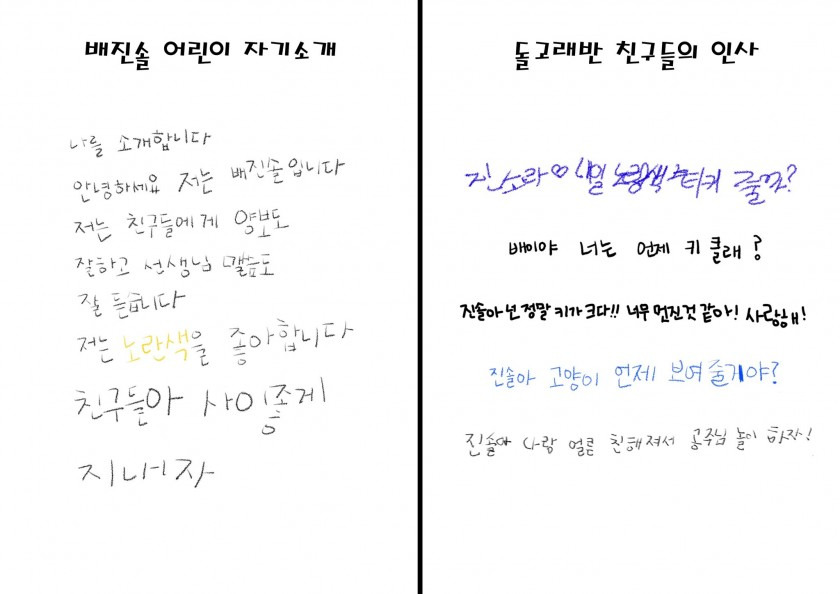 배진솔 어린이 자기소개
나를 소개합니다
안녕하세요 저는 배진솔입니다
저는 친구들에게 양보도
잘하고 선생님 말씀도
잘 듣습니다
저는 노란색을 좋아합니다
친구들아 사이좋게
지내자
돌고래반 친구들의 인사
진소라♡ 노랑색 줄까?
배이야 너는 언제 키 클래?
진솔아 넌 정말 키가 크다!! 너무 멋진것 같아! 사랑해!
진솔아 고양이 언제 보여줄거야?
진솔아 나랑 얼른 친해져서 공주님 놀이 하자!